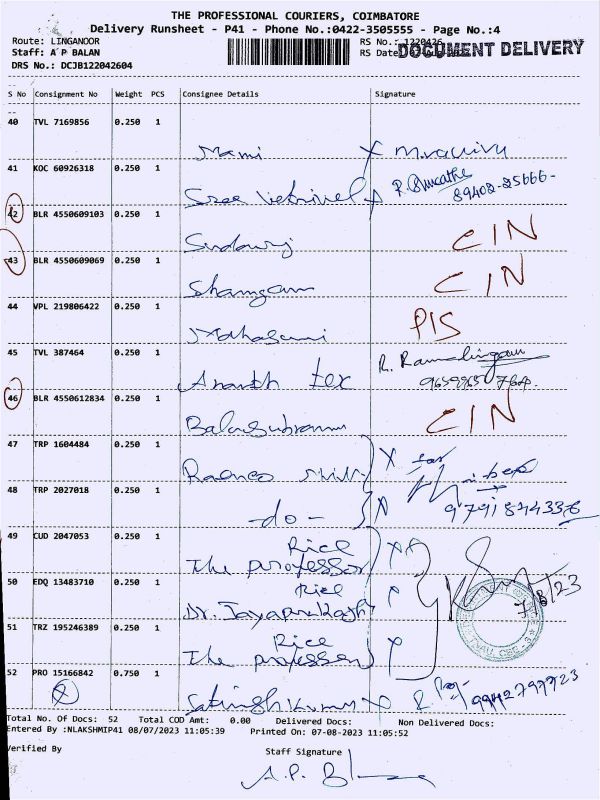 THE PROFESSIONAL COURIERS, COIMBATORE
Delivery Runsheet - P41 - Phone No.:0422-3505555 - Page No.:4
Route: LINGANOOR
Staff: A P BALAN
DRS No.: DCJB122042604
RS No.: 1220426
RS Date:
DOCUMENT DELIVERY
S No Consignment No Weight PCS Consignee Details Signature
40 TVL 7169856 0.250 1
Mami
41 KOC 60926318 0.250 1
Sree Vetrivel
89402-25666-
42 BLR 4550609103 0.250 1
CIN
43 BLR 4550609069 0.250 1
CIN
44 VPL 219806422 0.250 1
PIS
45 TVL 387464 0.250 1
Ananth tex R. Ramalingam
46 BLR 4550612834 0.250 1
Balasubramani CIN
47 TRP 1604484 0.250 1
48 TRP 2027018 0.250 1
-do-
49 CUD 2047053 0.250 1
Rice
The professor
50 EDQ 13483710 0.250 1
Rice
Dr. Jayaprakash
7/8/23
51 TRZ 195246389 0.250 1
Rice
The professor
52 PRO 15166842 0.750 1
Sathishkumar
Total No. Of Docs: 52 Total COD Amt: 0.00 Delivered Docs: Non Delivered Docs:
Entered By :NLAKSHMIP41 08/07/2023 11:05:39 Printed On: 07-08-2023 11:05:52
Verified By Staff Signature
A.P.